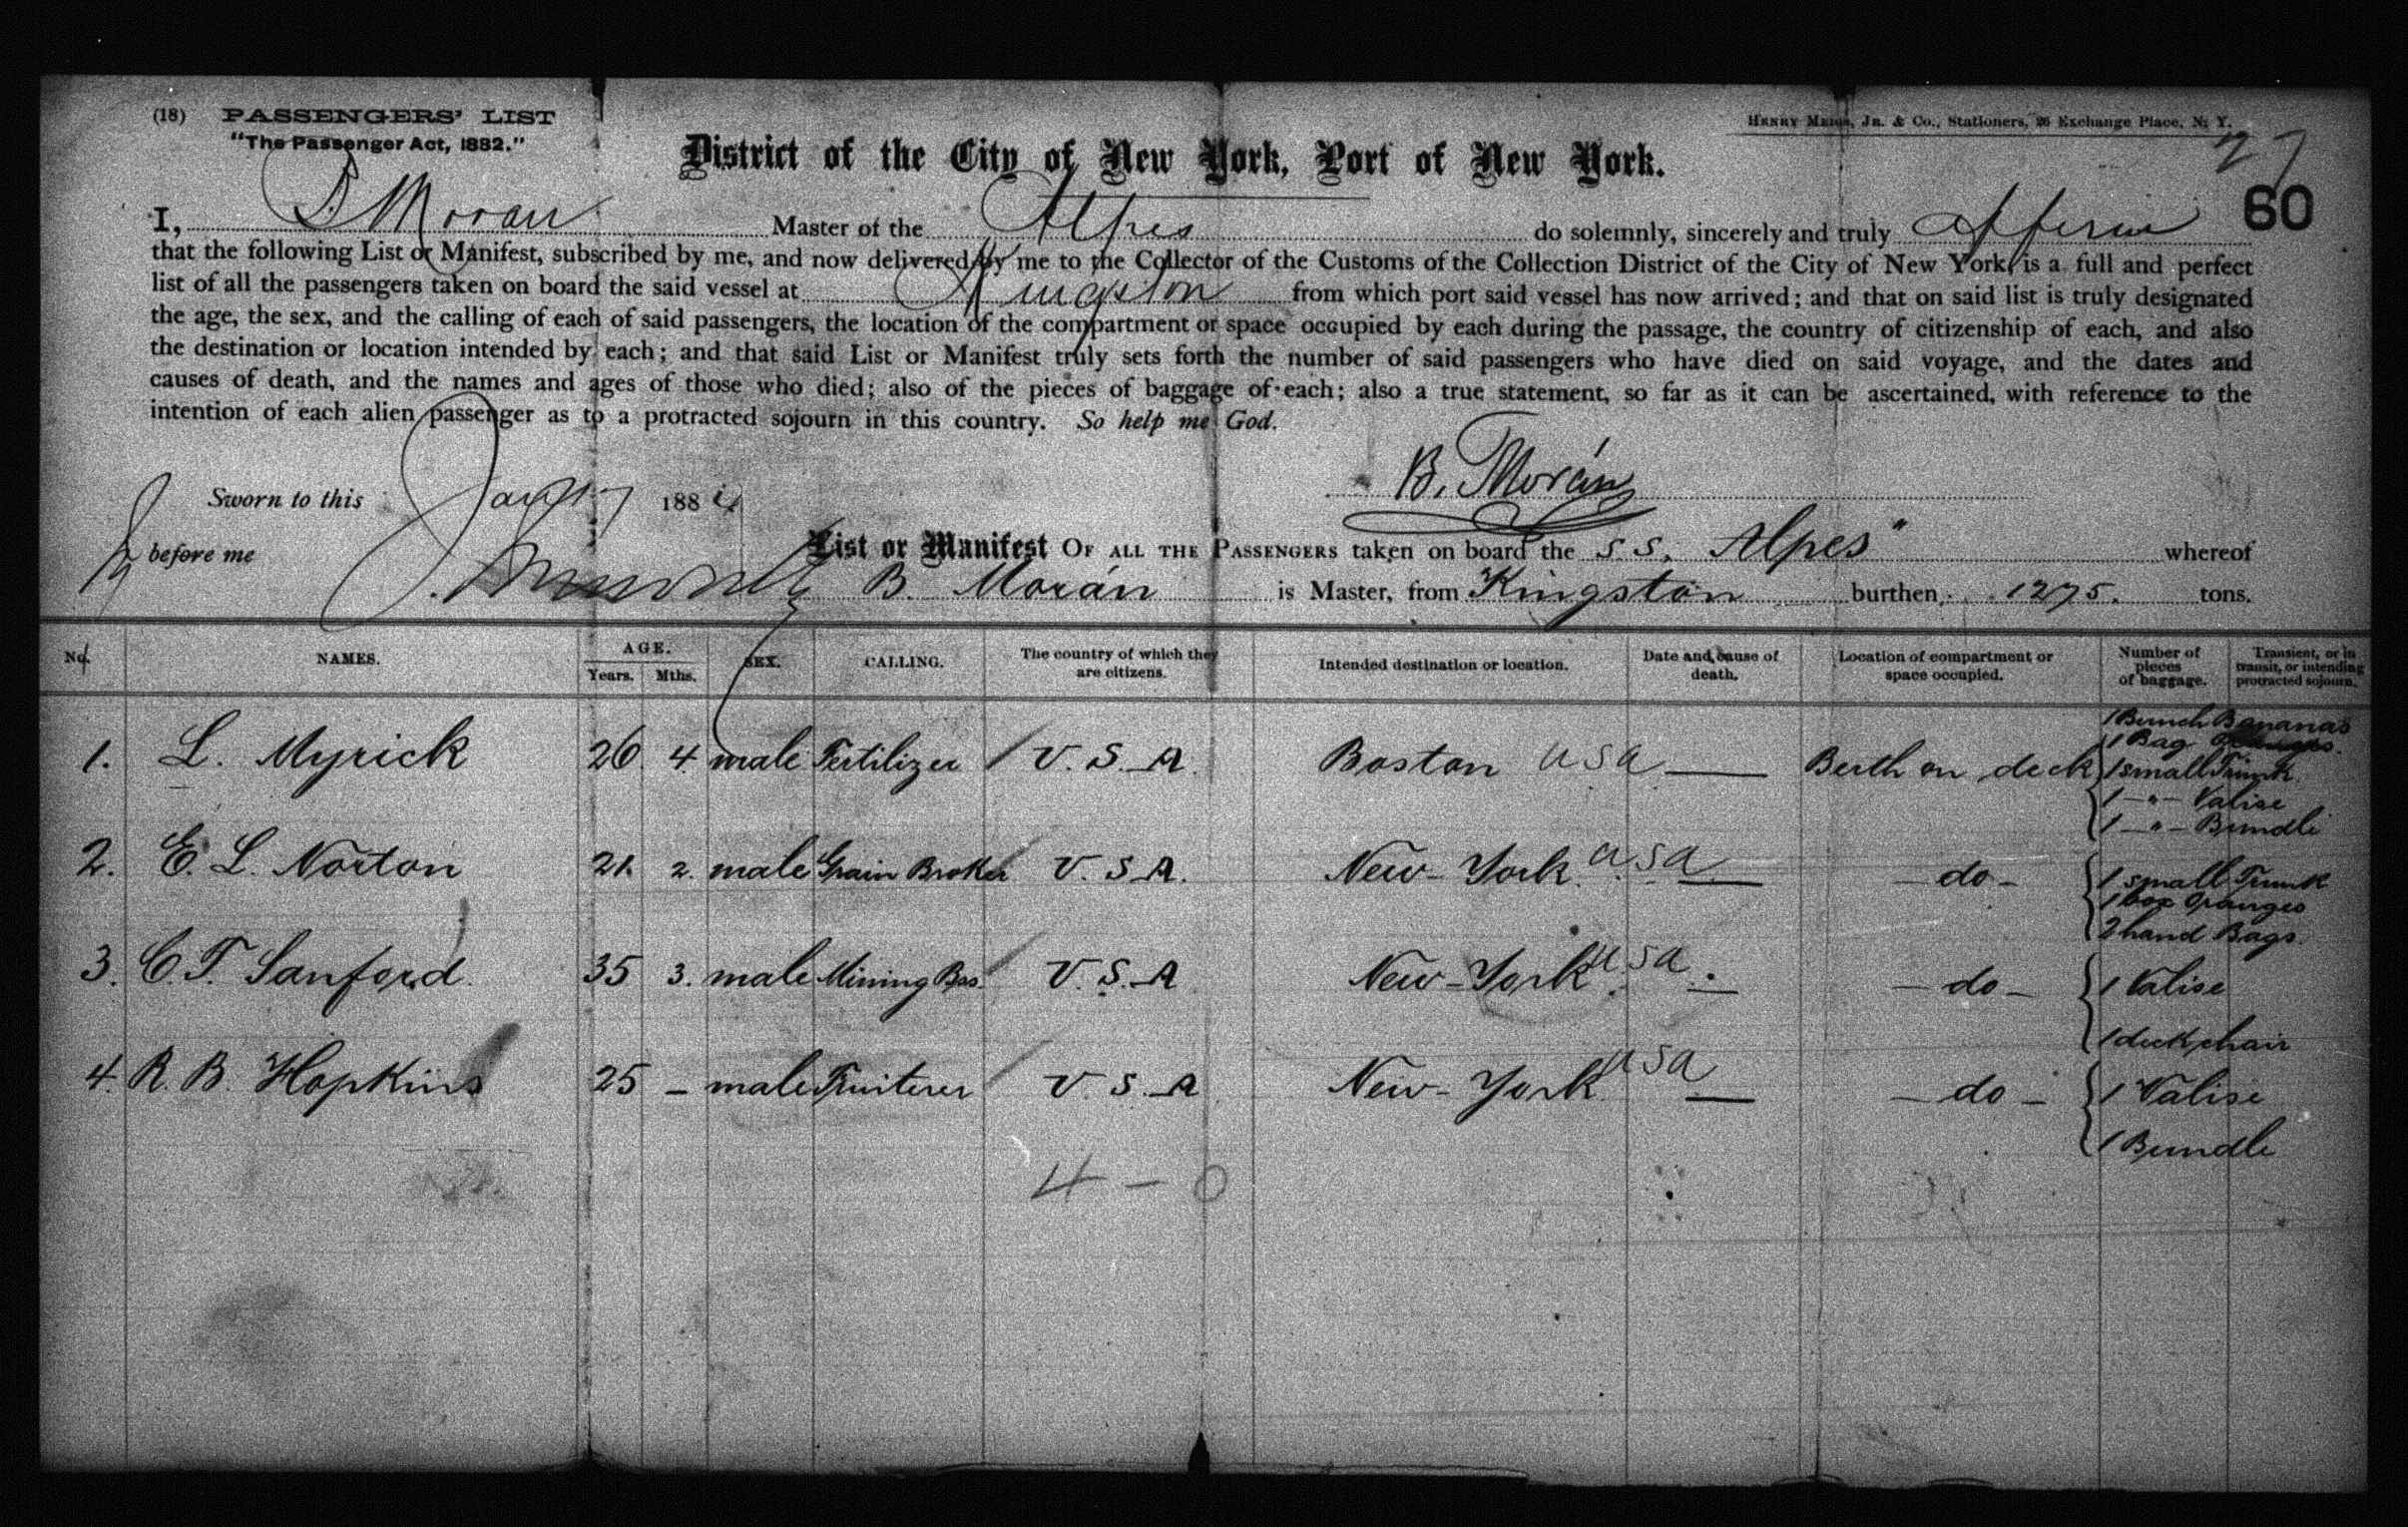 (18) PASSENGERS' LIST
"The Passenger Act, 1882."
HENRY MEIGS, JR. & CO., Stationers, 26 Exchange Place, N. Y.
District of the City of New York, Port of New York.
27
60
I, B. Moran Master of the Alpes do solemnly, sincerely and truly affirm
that the following List or Manifest, subscribed by me, and now delivered by me to the Collector of the Customs of the Collection District of the City of New York, is a full and perfect
list of all the passengers taken on board the said vessel at Kingston from which port said vessel has now arrived; and that on said list is truly designated
the age, the sex, and the calling of each of said passengers, the location of the compartment or space occupied by each during the passage, the country of citizenship of each, and also
the destination or location intended by each; and that said List or Manifest truly sets forth the number of said passengers who have died on said voyage, and the dates and
causes of death, and the names and ages of those who died; also of the pieces of baggage of each; also a true statement, so far as it can be ascertained, with reference to the
intention of each alien passenger as to a protracted sojourn in this country. So help me God.
B. Morán
Sworn to this Jany 17 1884
before me
List or Manifest OF ALL THE PASSENGERS taken on board the S.S. Alpes" whereof
B. Morán is Master, from Kingston burthen 1275. tons.
No. NAMES. AGE. Years. Mths. SEX. CALLING. The country of which they are citizens. Intended destination or location. Date and cause of death. Location of compartment or space occupied. Number of pieces of baggage. Transient, or in transit, or intending protracted sojourn.
1. L. Myrick 26 4. male Fertilizer U.S.A. Boston USA — Berth on deck
1 Bunch Bananas
1 Bag
1 small Trunk
1 -"- Valise
1 -"- Bundle
2. E. L. Norton 21. 2. male Grain Broker U.S.A. New-York. USA — do -
1 small Trunk
1 box Oranges
2 hand Bags.
3. C. T. Sanford. 35 3. male Mining Bss. U.S.A New-York USA — do -
1 Valise
1 deck chair
4. R. B. Hopkins 25 - male Fruiterer U.S.A New-York USA — do -
1 Valise
1 Bundle
4 - 0